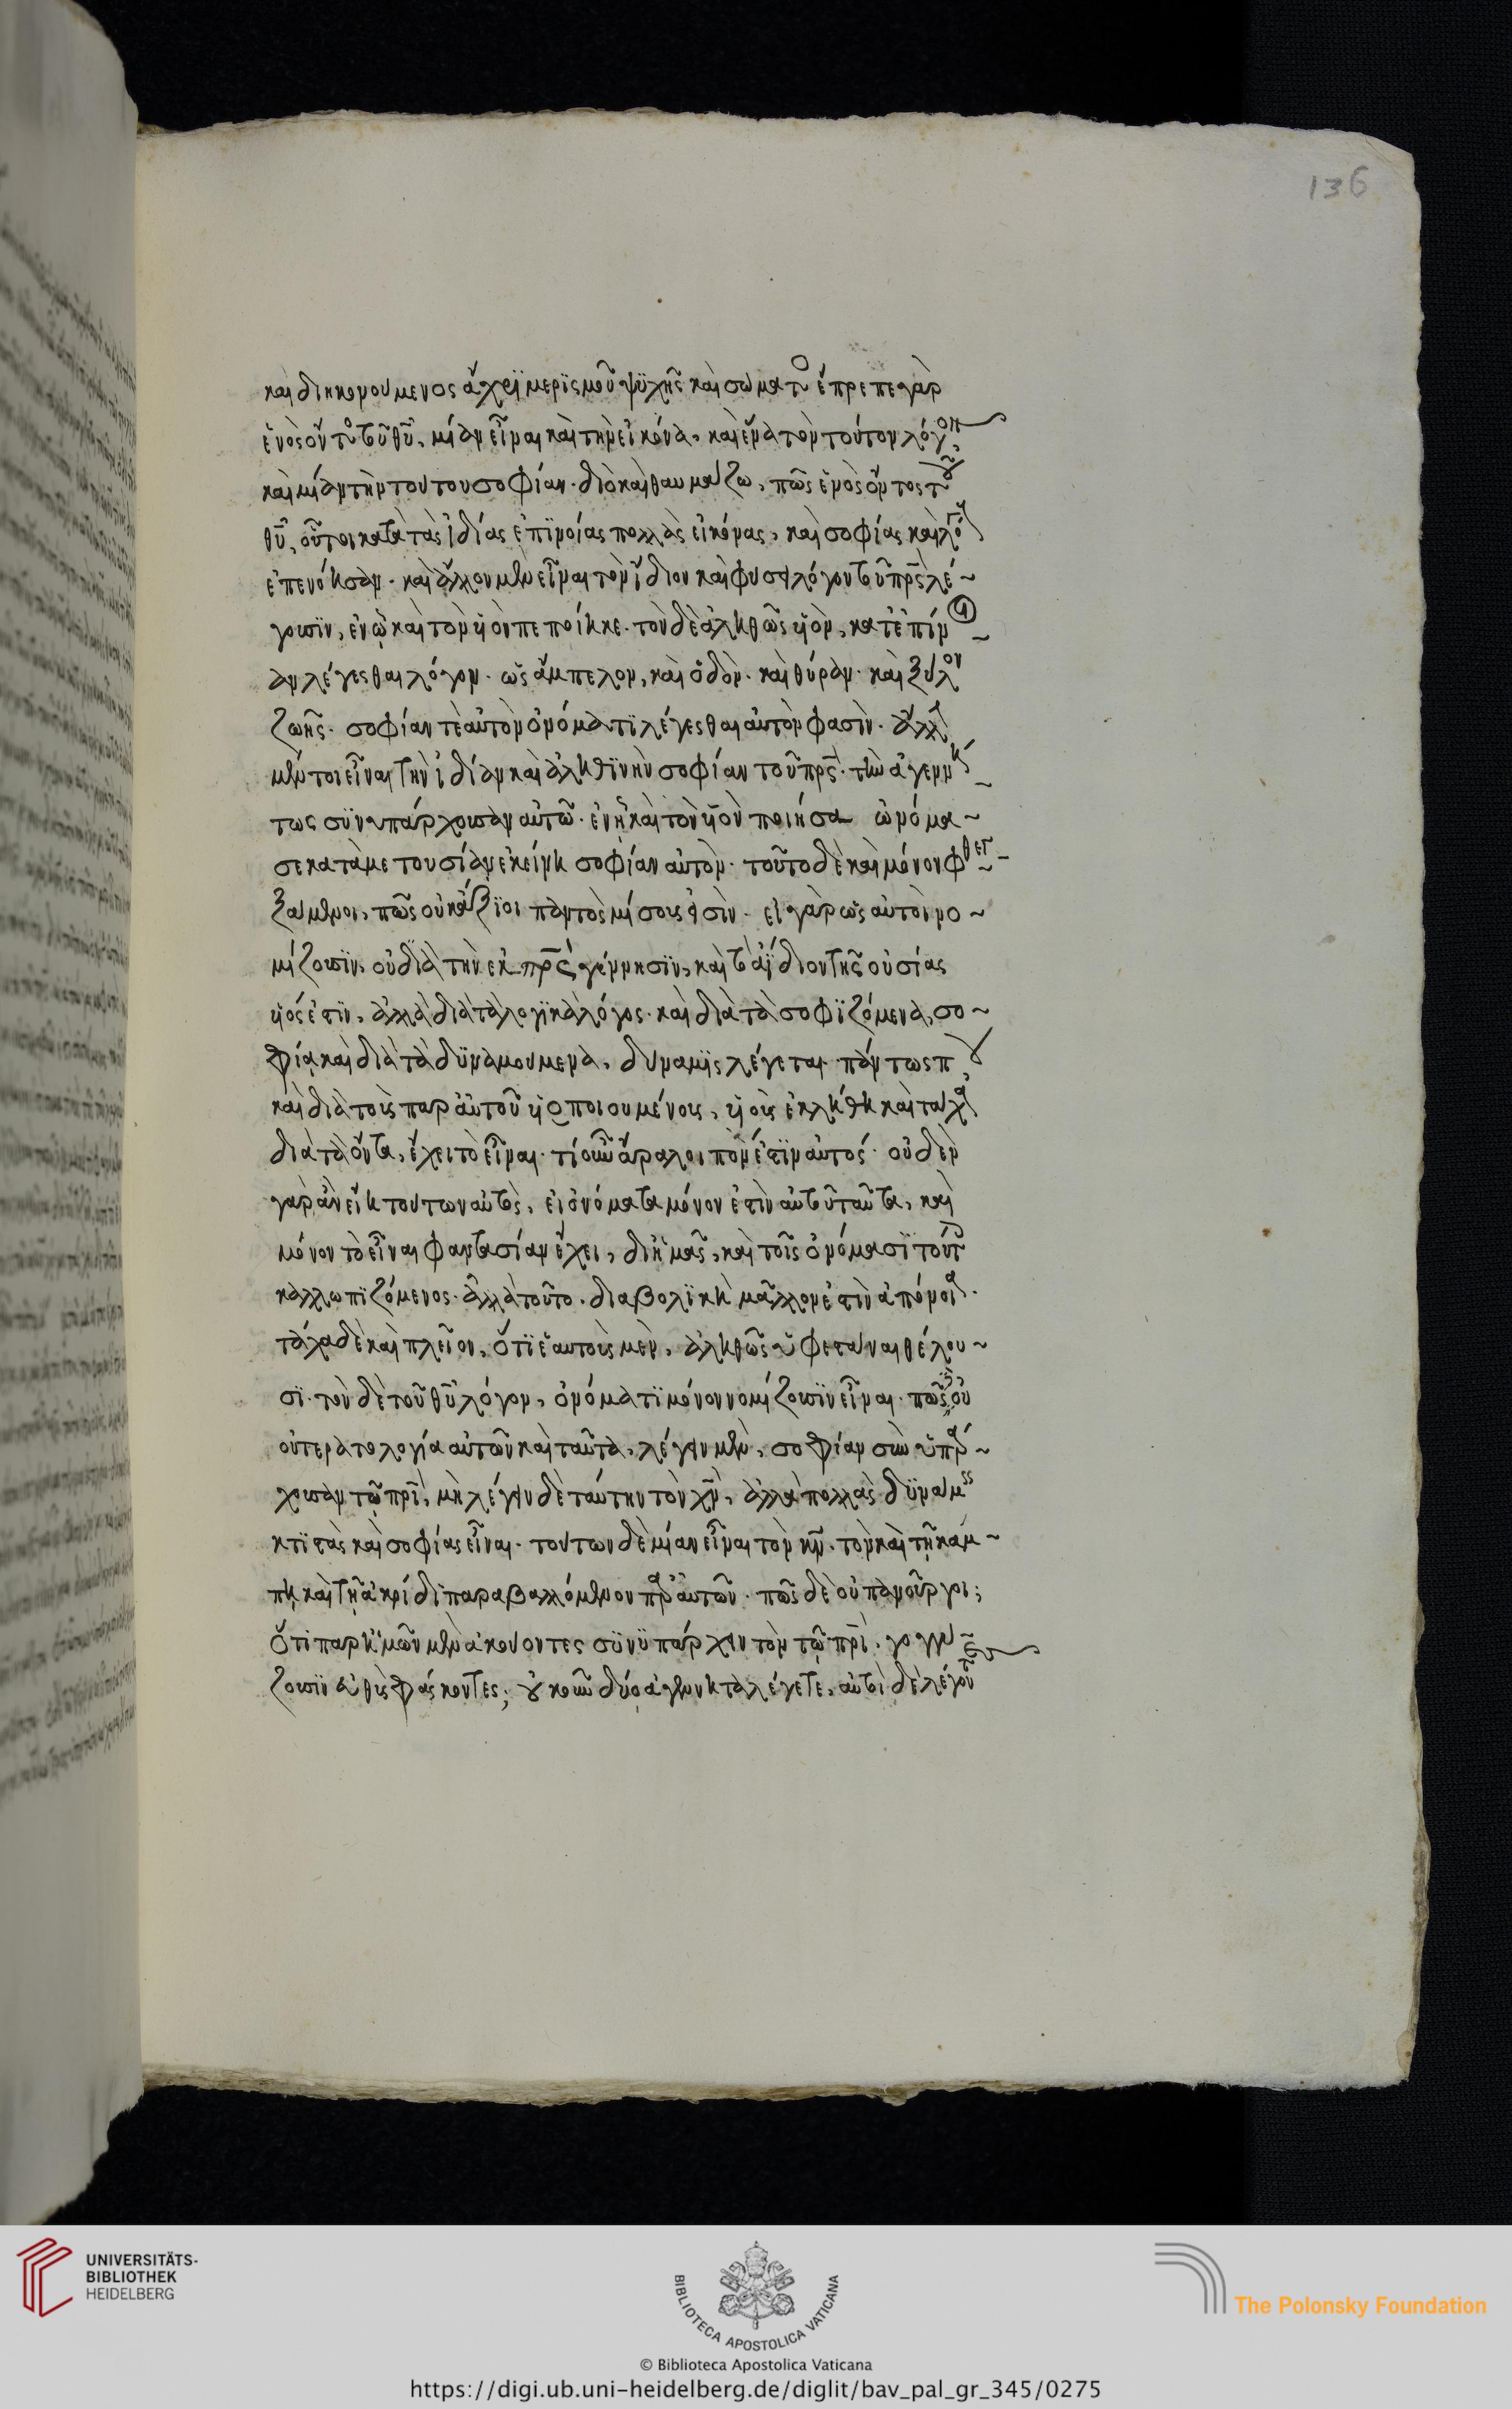 136
καὶ διϊκνούμενος ἄχρι μερισμοῦ ψυχῆς καὶ σωματο ἔπρεπε γὰρ
ἑνὸς ὄντος τοῦ θυ, μίαν εἶναι καὶ τὴν εἰκόνα, καὶ ἕνα τὸν τούτου λόγον
καὶ μίαν τὴν τούτου σοφίαν. διὸ καὶ θαυμάζω, πῶς ἑνὸς ὄντος τοῦ
θυ, οὗτοι κατὰ τὰς ἰδίας ἐπινοίας πολλὰς εἰκόνας, καὶ σοφίας καὶ λό
ἐπενόησαν. καὶ ἄλλον μὲν εἶναι τὸν ἴδιον καὶ φύσει λόγον τοῦ πρς λέ~
γουσιν, ἐν ᾧ καὶ τὸν υἱὸν πεποίηκε. τὸν δὲ ἀληθῶς υἱὸν, κατ' ἐπίν
αν λέγεσθαι λόγον. ὡς ἄμπελον, καὶ ὁδὸν. καὶ θύραν. καὶ ξύλον
ζωῆς. σοφίαν τὲ αὐτὸν ὀνόματι λέγεσθαι αὐτὸν φασὶν. ἄλλ
μέντοι εἶναι τὴν ἰδίαν καὶ ἀληθινὴν σοφίαν τοῦ πρς. τὴν ἀγεννή
τως συνυπάρχουσαν αὐτῶ. ἐν ἧ καὶ τὸν υἱὸν ποιήσα ὠνόμα~
σε κατὰ μετουσίαν ἐκείνη σοφίαν αὐτὸν. τοῦτο δὲ καὶ μόνον φθεγ
ξάμενοι, πῶς οὐκ ἄξιοι παντὸς μίσους εἰσὶν. εἰ γὰρ ὡς αὐτοὶ νο~
μίζουσιν, οὐ διὰ τὴν ἐκ πρς γέννησιν, καὶ τὸ ἀΐδιον τῆς οὐσίας
υἱός ἐστιν, ἀλλὰ διὰ τὰ λογικὰ λόγος. καὶ διὰ τὰ σοφιζόμενα, σο~
φία καὶ διὰ τὰ δυναμούμενα, δύναμις λέγεται. πάντως π
καὶ διὰ τοὺς παρ αὐτοῦ υἱοποιουμένους, υἱὸς ἐκλήθη καὶ ταχ
διὰ τὰ ὄντα, ἔχει τὸ εἶναι. τί οὖν ἄρα λοιπὸν ἐστιν αὐτός. οὐδὲν
γὰρ ἂν εἴη τούτων αὐτὸς, εἰ ὀνόματα μόνον ἐστὶν αὐτοῦ ταῦτα, καὶ
μόνον τὸ εἶναι φαντασίαν ἔχει, δι ἡμᾶς, καὶ τοῖς ὀνόμασι τούτ
καλλωπιζόμενος. ἀλλὰ τοῦτο. διαβολικὴ μᾶλλον ἐστὶν ἀπόνοι.
τάχα δὲ καὶ πλεῖον, ὅτι ἑαυτοὺς μὲν, ἀληθῶς ὑφεστάναι θέλου~
σι. τὸν δὲ τοῦ θυ λόγον, ὀνόματι μόνον νομίζουσιν εἶναι. πῶς οὐ
οὐ τερατολογία αὐτῶν καὶ ταῦτα, λέγειν μὲν, σοφίαν συνυπάρ~
χουσαν τῶ πρι, μὴ λέγειν δὲ ταύτην τὸν χν, ἀλλὰ πολλὰς δυνάμ
κτιστὰς καὶ σοφίας εἶναι. τούτων δὲ μίαν εἶναι τὸν κν. τὸν καὶ τῇ κάμ~
πῃ καὶ τῇ ἀκρίδι παραβαλλόμενον παρ αὐτῶν. πῶς δὲ οὐ πανοῦργοι;
ὅτι παρ ἡμῶν μὲν ἀκούοντες συνυπάρχειν τὸν τῶ πρι. γογγύ
ζουσιν εὐθὺς φάσκοντες; οὐκοῦν δύο ἀγένητα λέγετε, αὐτοὶ δὲ λέγον
UNIVERSITÄTS-
BIBLIOTHEK
HEIDELBERG
BIBLIOTECA APOSTOLICA VATICANA
The Polonsky Foundation
© Biblioteca Apostolica Vaticana
https://digi.ub.uni-heidelberg.de/diglit/bav_pal_gr_345/0275